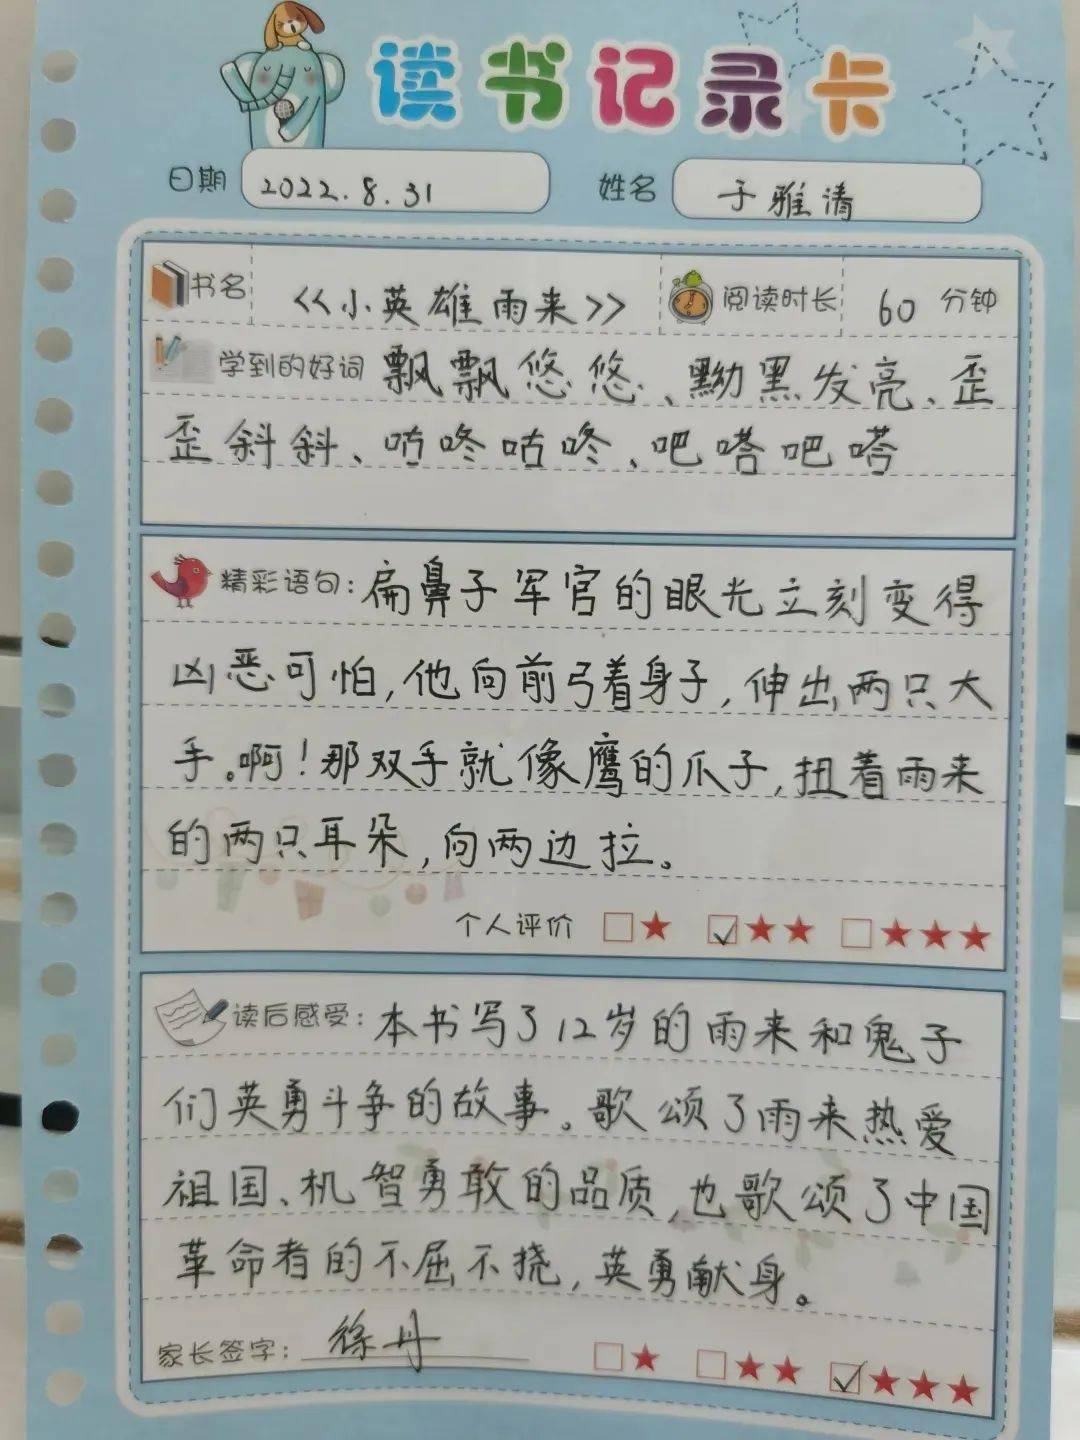 读书记录卡
日期 2022.8.31 姓名 于雅清
书名 <<小英雄雨来>> 阅读时长 60 分钟
学到的好词 飘飘悠悠、黝黑发亮、歪
歪斜斜、咕咚咕咚、吧嗒吧嗒
精彩语句：扁鼻子军官的眼光立刻变得
凶恶可怕,他向前弓着身子,伸出两只大
手。啊!那双手就像鹰的爪子,扭着雨来
的两只耳朵,向两边拉。
个人评价
读后感受：本书写了12岁的雨来和鬼子
们英勇斗争的故事。歌颂了雨来热爱
祖国、机智勇敢的品质,也歌颂了中国
革命者的不屈不挠,英勇献身。
家长签字：徐丹